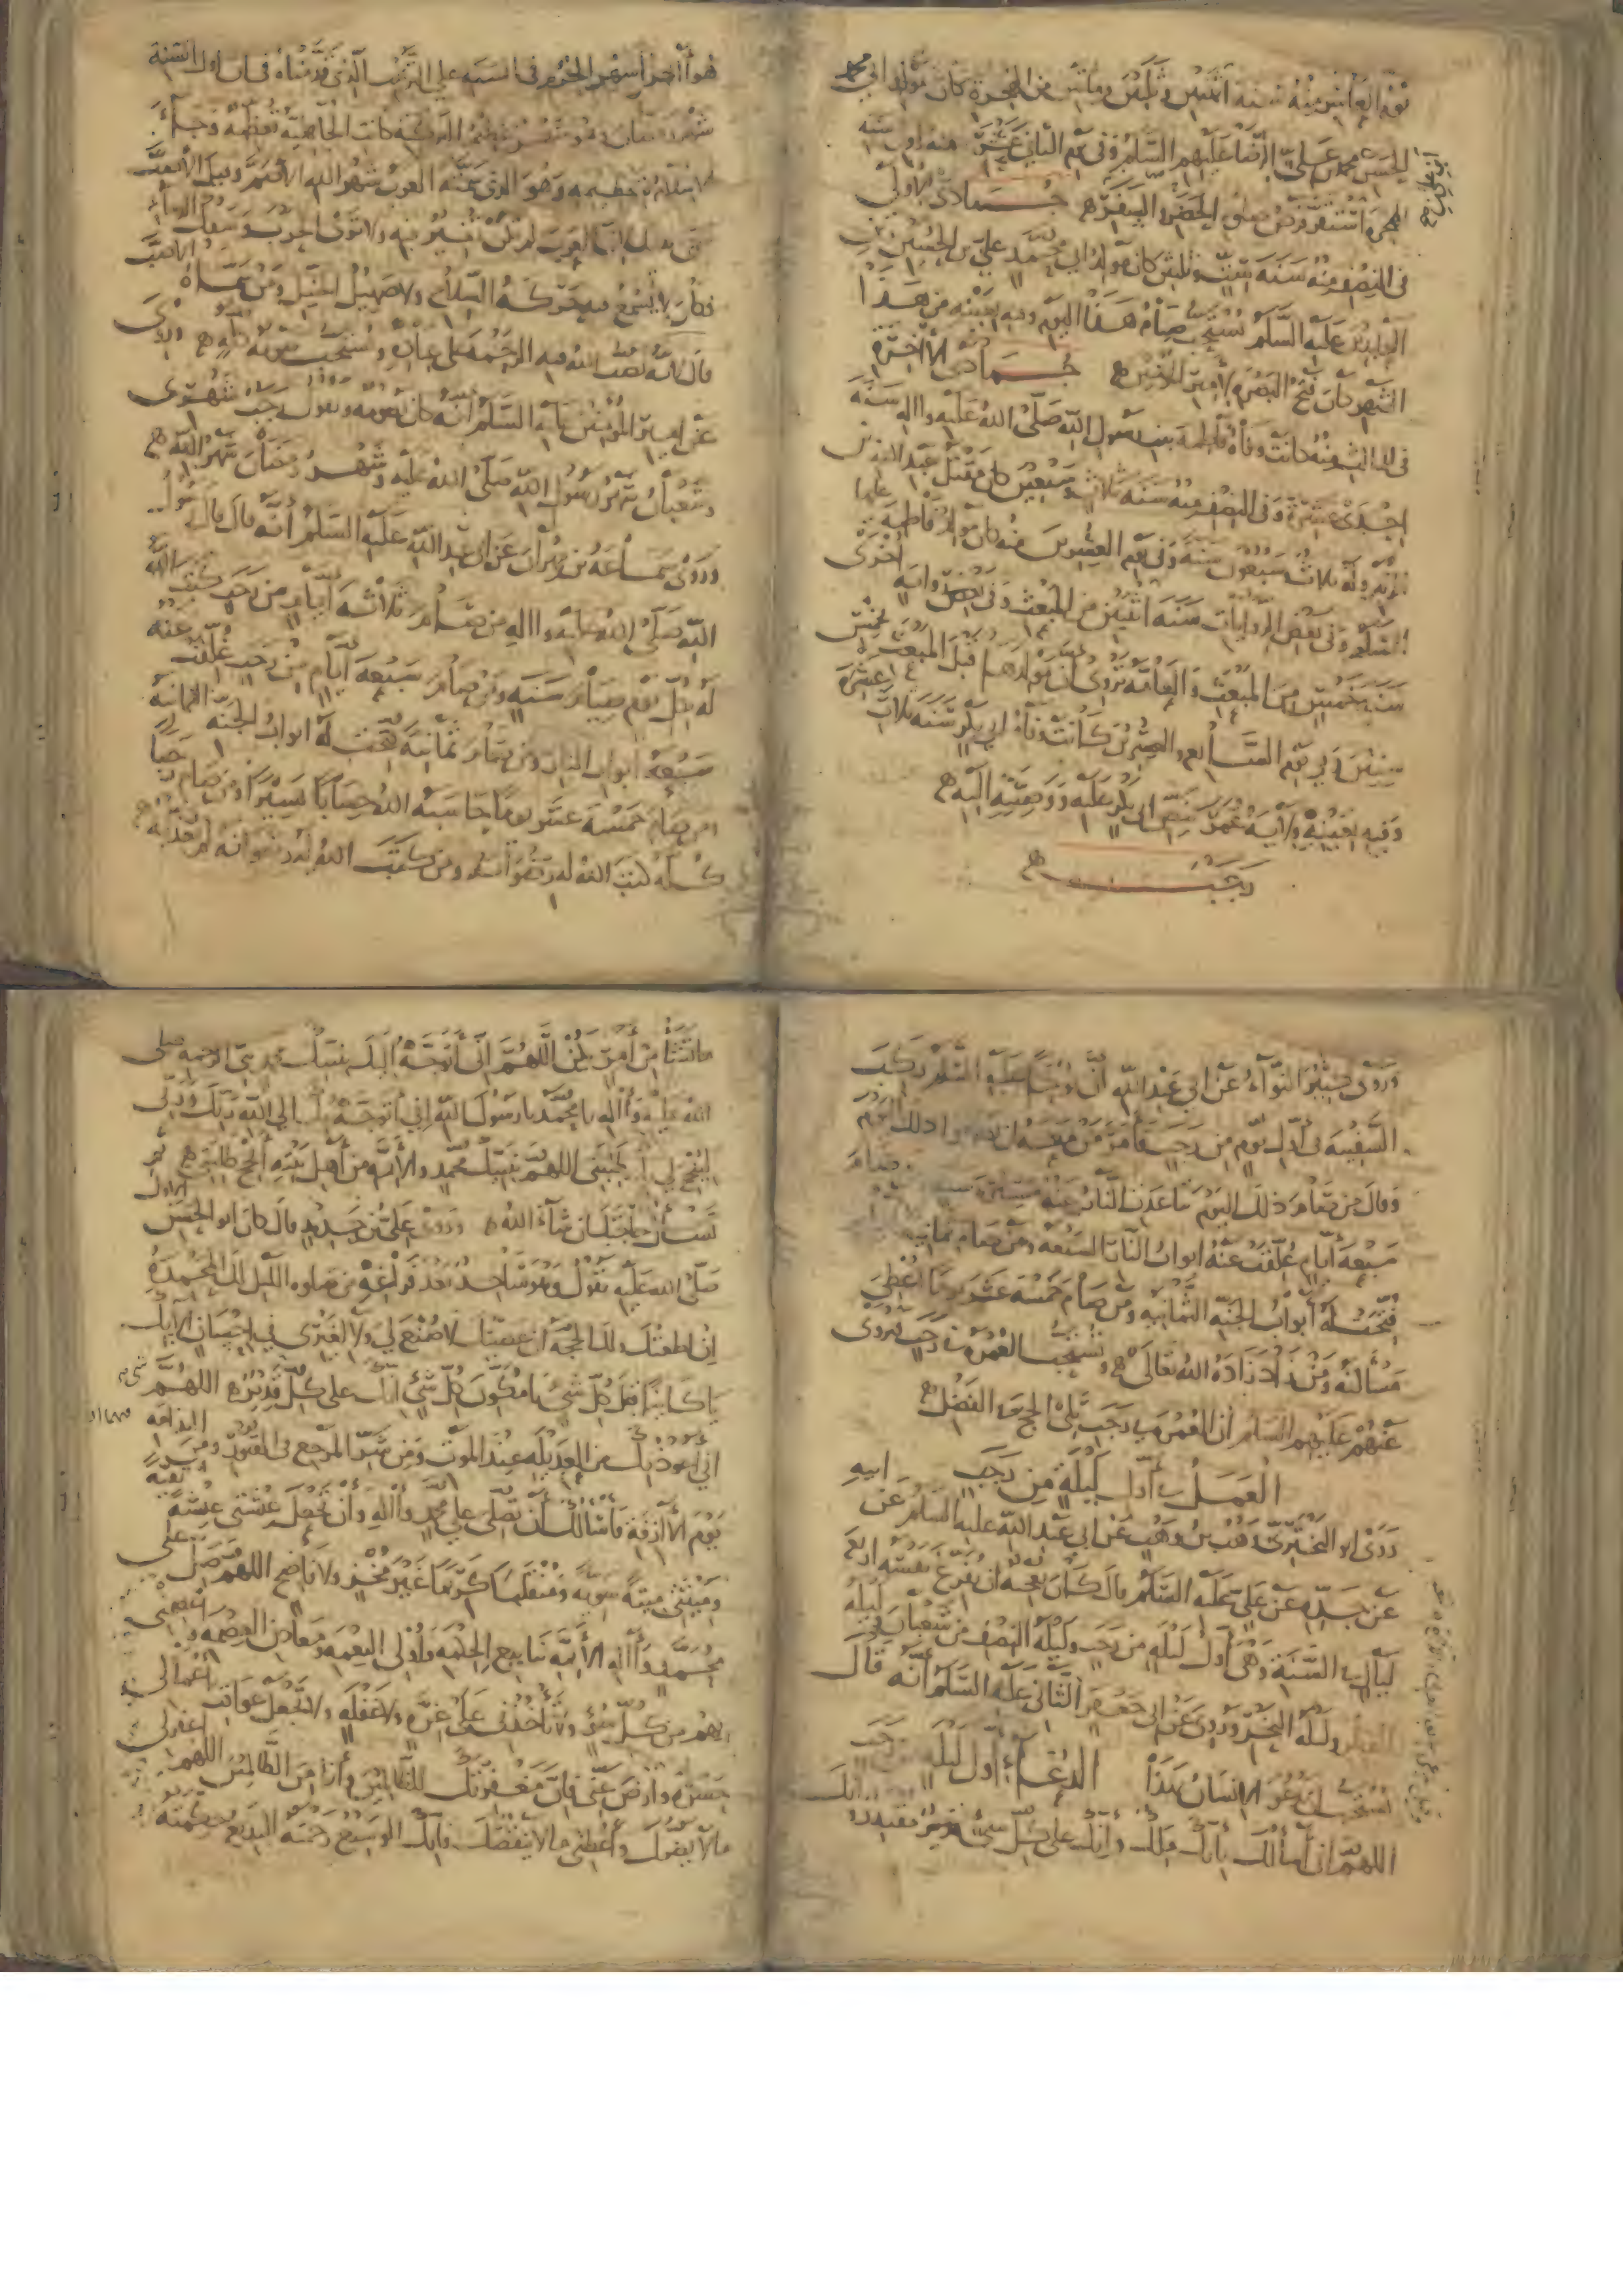 يوم العاشر منه سنة اثنتين وثلثين ومائتين من الهجرة كان مولد ابي محمد
الحسن بن محمد بن علي الرضا عليهم السلم وفي يوم الثاني عشر منه اول سنة
الهجرة استقر فرض صلوة الحضر والسفر جمادى الاولى
في النصف منه سنة ست وثلثين كان مولد ابي محمد علي بن الحسين
العابدين عليه السلم يستحب صيام هذا اليوم وفيه بعينه من هذا
الشهر كان فتح البصرة لامير المؤمنين جمادى الاخرة
في الثالث منه كانت وفاة فاطمة بنت رسول الله صلى الله عليه واله سنة
احدى عشرة وفي النصف منه سنة ثلاث وسبعين كان مقتل عبد الله بن
الزبير وله ثلاث وسبعون سنة وفي يوم العشرين منه كان مولد فاطمة عليها
السلم وفي بعض الروايات سنة اثنتين من المبعث وفي رواية اخرى
سنة خمس من المبعث والعامة تروي ان مولدها قبل المبعث بخمس
سنين وفي يوم السابع والعشرين كانت وفاة ابي بكر سنة ثلاث عشرة
وفيه بعينه ولاية عمر بنص ابي بكر عليه ووصيته اليه
رجب
هو اخر اشهر الحرم في السنة على الترتيب الذي قدمناه في ان اول السنة
شهر رمضان وهو شهر عظيم البركة كانت الجاهلية تعظمه وجاء
الاسلام بتعظيمه وهو الذي سمته العرب شهر الله الاصم وقيل الاصم
لان العرب لم تكن تغير فيه ولا ترى الحرب وسفك الدماء
فكان لا يسمع فيه حركة السلاح ولا صهيل الخيل ومن سماه الاصب
قال لانه يصب الله فيه الرحمة على عباده ويستحب صومه كله وروي
عن امير المؤمنين عليه السلم انه كان يصومه ويقول رجب شهري
وشعبان شهر رسول الله صلى الله عليه وشهر رمضان شهر الله
وروى سماعة بن مهران عن ابي عبد الله عليه السلم انه قال قال رسول
الله صلى الله عليه واله من صام ثلاثة ايام من رجب كتب الله
له بكل يوم صيام سنة ومن صام سبعة ايام من رجب غلقت عنه
سبعة ابواب النار ومن صام ثمانية فتحت له ابواب الجنة الثمانية
ومن صام خمسة عشر يوما حاسبه الله حسابا يسيرا ومن صام رجبا
كله كتب الله له رضوانه ومن كتب الله له رضوانه لم يعذبه
وروى كثير النواء عن ابي عبد الله ان نوحا عليه السلم ركب
السفينة في اول يوم من رجب فامر من معه ان يصوموا ذلك اليوم
وقال من صام ذلك اليوم تباعدت النار عنه مسيرة سنة ومن صام
سبعة ايام غلقت عنه ابواب النار السبعة ومن صام ثمانية
فتحت له ابواب الجنة الثمانية ومن صام خمسة عشر يوما اعطي
مسالته ومن زاد زاده الله تعالى ويستحب العمرة في رجب فروي
عنهم عليهم السلم ان العمرة في رجب تلي الحج في الفضل
العمل في اول ليلة من رجب
روى ابو البختري وهب بن وهب عن ابي عبد الله عليه السلم عن ابيه
عن جده عن علي عليه السلم قال كان يعجبه ان يفرغ نفسه اربع
ليال في السنة وهي اول ليلة من رجب وليلة النصف من شعبان وليلة
الفطر وليلة النحر وروي عن ابي جعفر الثاني عليه السلم انه قال
يستحب ان يدعو الانسان بهذا الدعاء اول ليلة من رجب
اللهم اني اسالك بانك ملك وانك على كل شيء مقتدر وانك
ما تشاء من امر يكن اللهم اني اتوجه اليك بنبيك محمد نبي الرحمة صلى
الله عليه واله يا محمد يا رسول الله اني اتوجه بك الى الله ربك وربي
لينجح لي طلبتي اللهم بنبيك محمد والائمة من اهل بيته انجح طلبتي ثم
تسال حاجتك ان شاء الله وروى علي بن حديد قال كان ابو الحسن الاول
صلى الله عليه يقول وهو ساجد بعد فراغه من صلوة الليل لك المحمدة
ان اطعتك ولك الحجة ان عصيتك لا صنع لي ولا لغيري في احسان الا بك
يا كائنا قبل كل شيء يا مكون كل شيء انك على كل شيء قدير اللهم
اني اعوذ بك من العديلة عند الموت ومن شر المرجع في القبور ومن الندامة
يوم الازفة فاسالك ان تصلي على محمد واله وان تجعل عيشتي عيشة نقية
وميتتي ميتة سوية ومنقلبي كريما غير مخز ولا فاضح اللهم صل على
محمد واله الائمة ينابيع الحكمة واولي النعمة ومعادن العصمة واعصمني
بهم من كل سوء ولا تاخذني على غرة ولا غفلة ولا تجعل عواقب اعمالي
حسرة وارض عني فان مغفرتك للظالمين وانا من الظالمين اللهم اغفر لي
ما لا يضرك واعطني ما لا ينقصك فانك الوسيع رحمته البديع حكمته